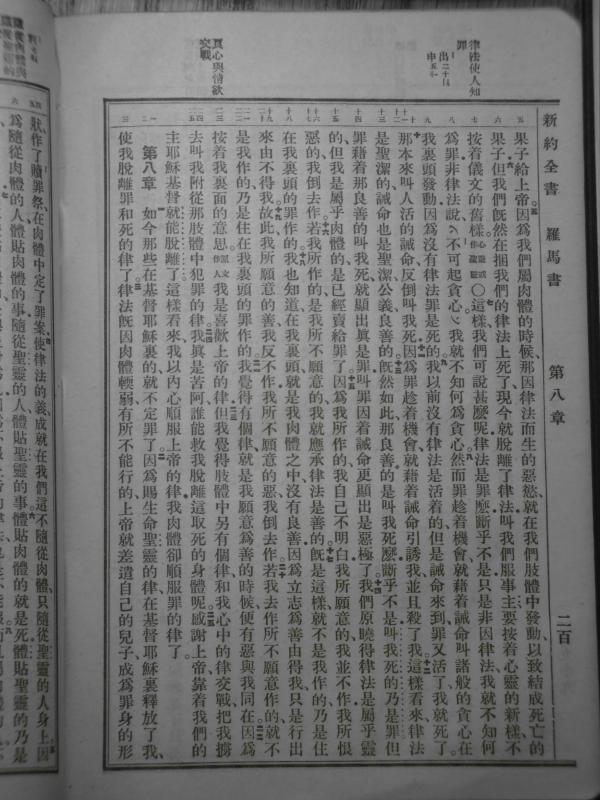 新約全書 羅馬書 第八章 二百
律法使人知
罪
出二十〇
申五〇
真心與情欲
交戰
果子給上帝因爲我們屬肉體的時候、那因律法而生的惡慾、就在我們肢體中發動以致結成死亡的
果子但我們旣然在捆我們的律法上死了現今就脫離了律法叫我們服事主要按着心靈的新樣不
按着儀文的舊樣〇這樣我們可說甚麼呢律法是罪麼斷乎不是只是非因律法我就不知何
爲罪非律法說不可起貪心我就不知何爲貪心然而罪趁着機會就藉着誡命叫諸般的貪心在
我裏頭發動因爲沒有律法罪是死的我以前沒有律法是活着的但是誡命來到罪又活了我就死了
那本來叫人活的誡命反倒叫我死因爲罪趁着機會就藉着誡命引誘我並且殺了我這樣看來律法
是聖潔的誡命也是聖潔公義良善的旣然如此那良善的是叫我死麼斷乎不是叫我死的乃是罪但
罪藉着那良善的叫我死就顯出眞是罪叫罪因着誡命更顯出是惡極了我們原曉得律法是屬乎靈
的但我是屬乎肉體的是已經賣給罪了因爲我所作的我自己不明白我所願意的我並不作我所恨
惡的我倒去作若我所作的是我所不願意的我就應承律法是善的旣是這樣就不是我作的乃是住
在我裏頭的罪作的我也知道在我裏頭就是我肉體之中沒有良善因爲立志爲善由得我只是行出
來由不得我故此我所願意的善我反不作我所不願意的惡我倒去作若我去作所不願意作的就不
是我作的乃是住在我裏頭的罪作的我覺得有個律就是我願意爲善的時候便有惡與我同在因爲
按着我裏面的意思我是喜歡上帝的律但我覺得肢體中另有個律和我心中的律交戰把我擄
去叫我附從那肢體中犯罪的律我眞是苦阿誰能救我脫離這取死的身體呢感謝上帝靠着我們的
主耶穌基督就能脫離了這樣看來我以內心順服上帝的律我肉體卻順服罪的律了
第八章 如今那些在基督耶穌裏的就不定罪了因爲賜生命聖靈的律在基督耶穌裏釋放了我、
使我脫離罪和死的律了律法旣因肉體輭弱有所不能行的、上帝就差遣自己的兒子、成爲罪身的形
狀作了贖罪祭在肉體中定了罪案使律法的義成就在我們這不隨從肉體只隨從聖靈的人身上因
爲隨從肉體的人體貼肉體的事隨從聖靈的人體貼聖靈的事體貼肉體的就是死體貼聖靈的乃是